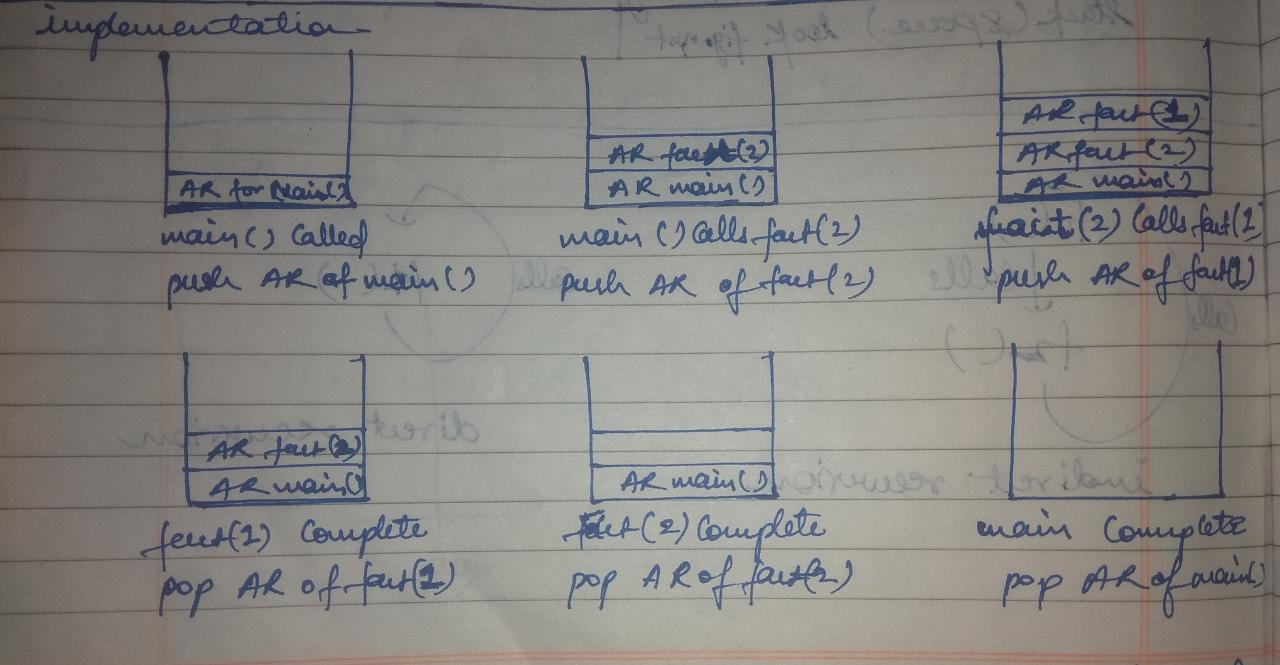 implementation
AR for Main()
main() Called
push AR of main()
AR fact(2)
AR main()
main() Calls fact(2)
push AR of fact(2)
AR fact(1)
AR fact(2)
AR main()
(2) Calls fact(1)
push AR of fact(1)
AR fact(2)
AR main()
fact(1) Complete
pop AR of fact(1)
AR main()
fact(2) Complete
pop AR of fact(2)
main Complete
pop AR of main()